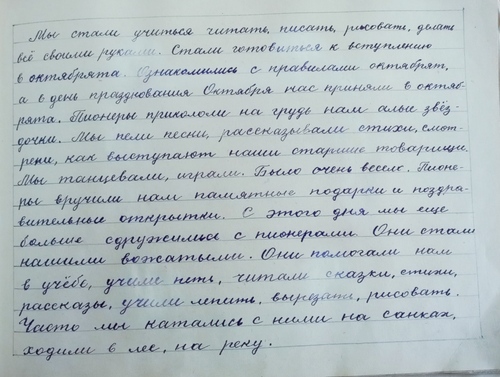 Мы стали учиться читать, писать, рисовать, делать
всё своими руками. Стали готовиться к вступлению
в октябрята. Ознакомились с правилами октябрят,
а в день празднования Октября нас приняли в октяб-
рята. Пионеры прикололи на грудь нам алые звёз-
дочки. Мы пели песни, рассказывали стихи, смот-
рели, как выступают наши старшие товарищи.
Мы танцевали, играли. Было очень весело. Пионе-
ры вручили нам памятные подарки и поздра-
вительные открытки. С этого дня мы еще
больше сдружились с пионерами. Они стали
нашими вожатыми. Они помогали нам
в учёбе, учили петь, читали сказки, стихи,
рассказы, учили лепить, вырезать, рисовать.
Часто мы катались с ними на санках,
ходили в лес, на реку.